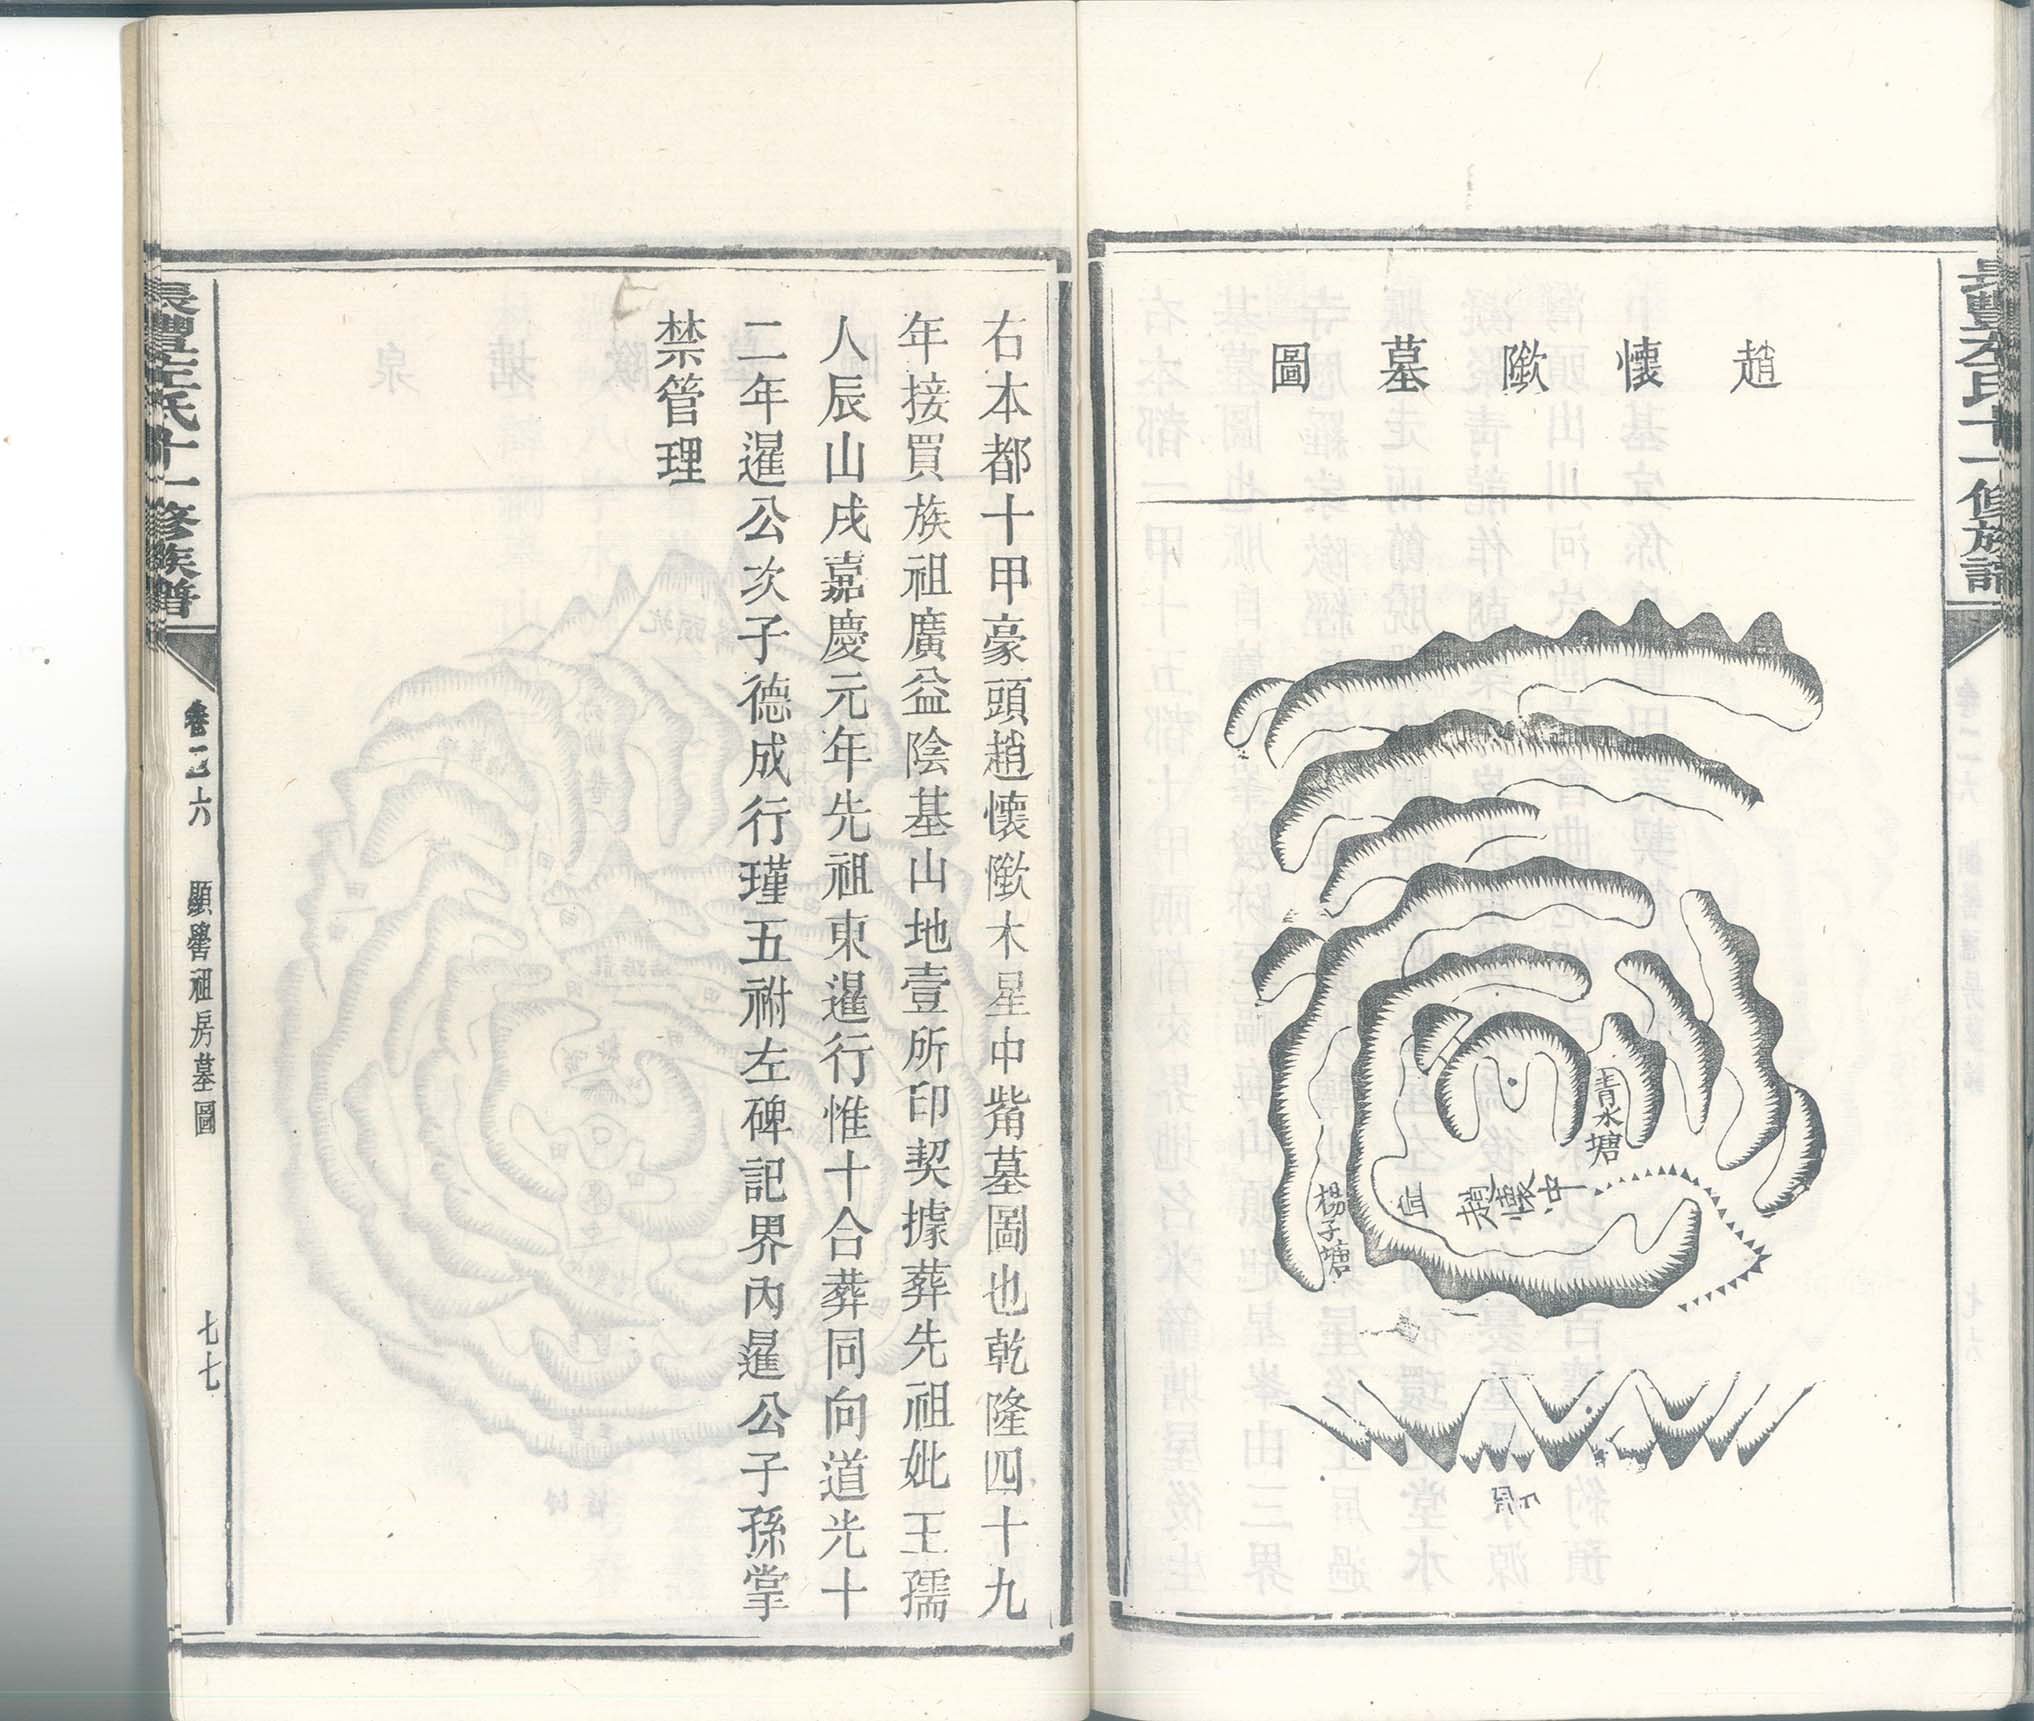 趙懷歟墓圖
青水塘
趙懷中
楊子塘
右本都十甲豪頭趙懷歟木星中觜墓圖也乾隆四十九
年接買族祖廣益陰基山地壹所印契據葬先祖妣王孺
人辰山戌嘉慶元年先祖東暹行惟十合葬同向道光十
二年暹公次子德成行瑾五祔左碑記界內暹公子孫掌
禁管理
卷二六
顯譽祖房墓圖
七七